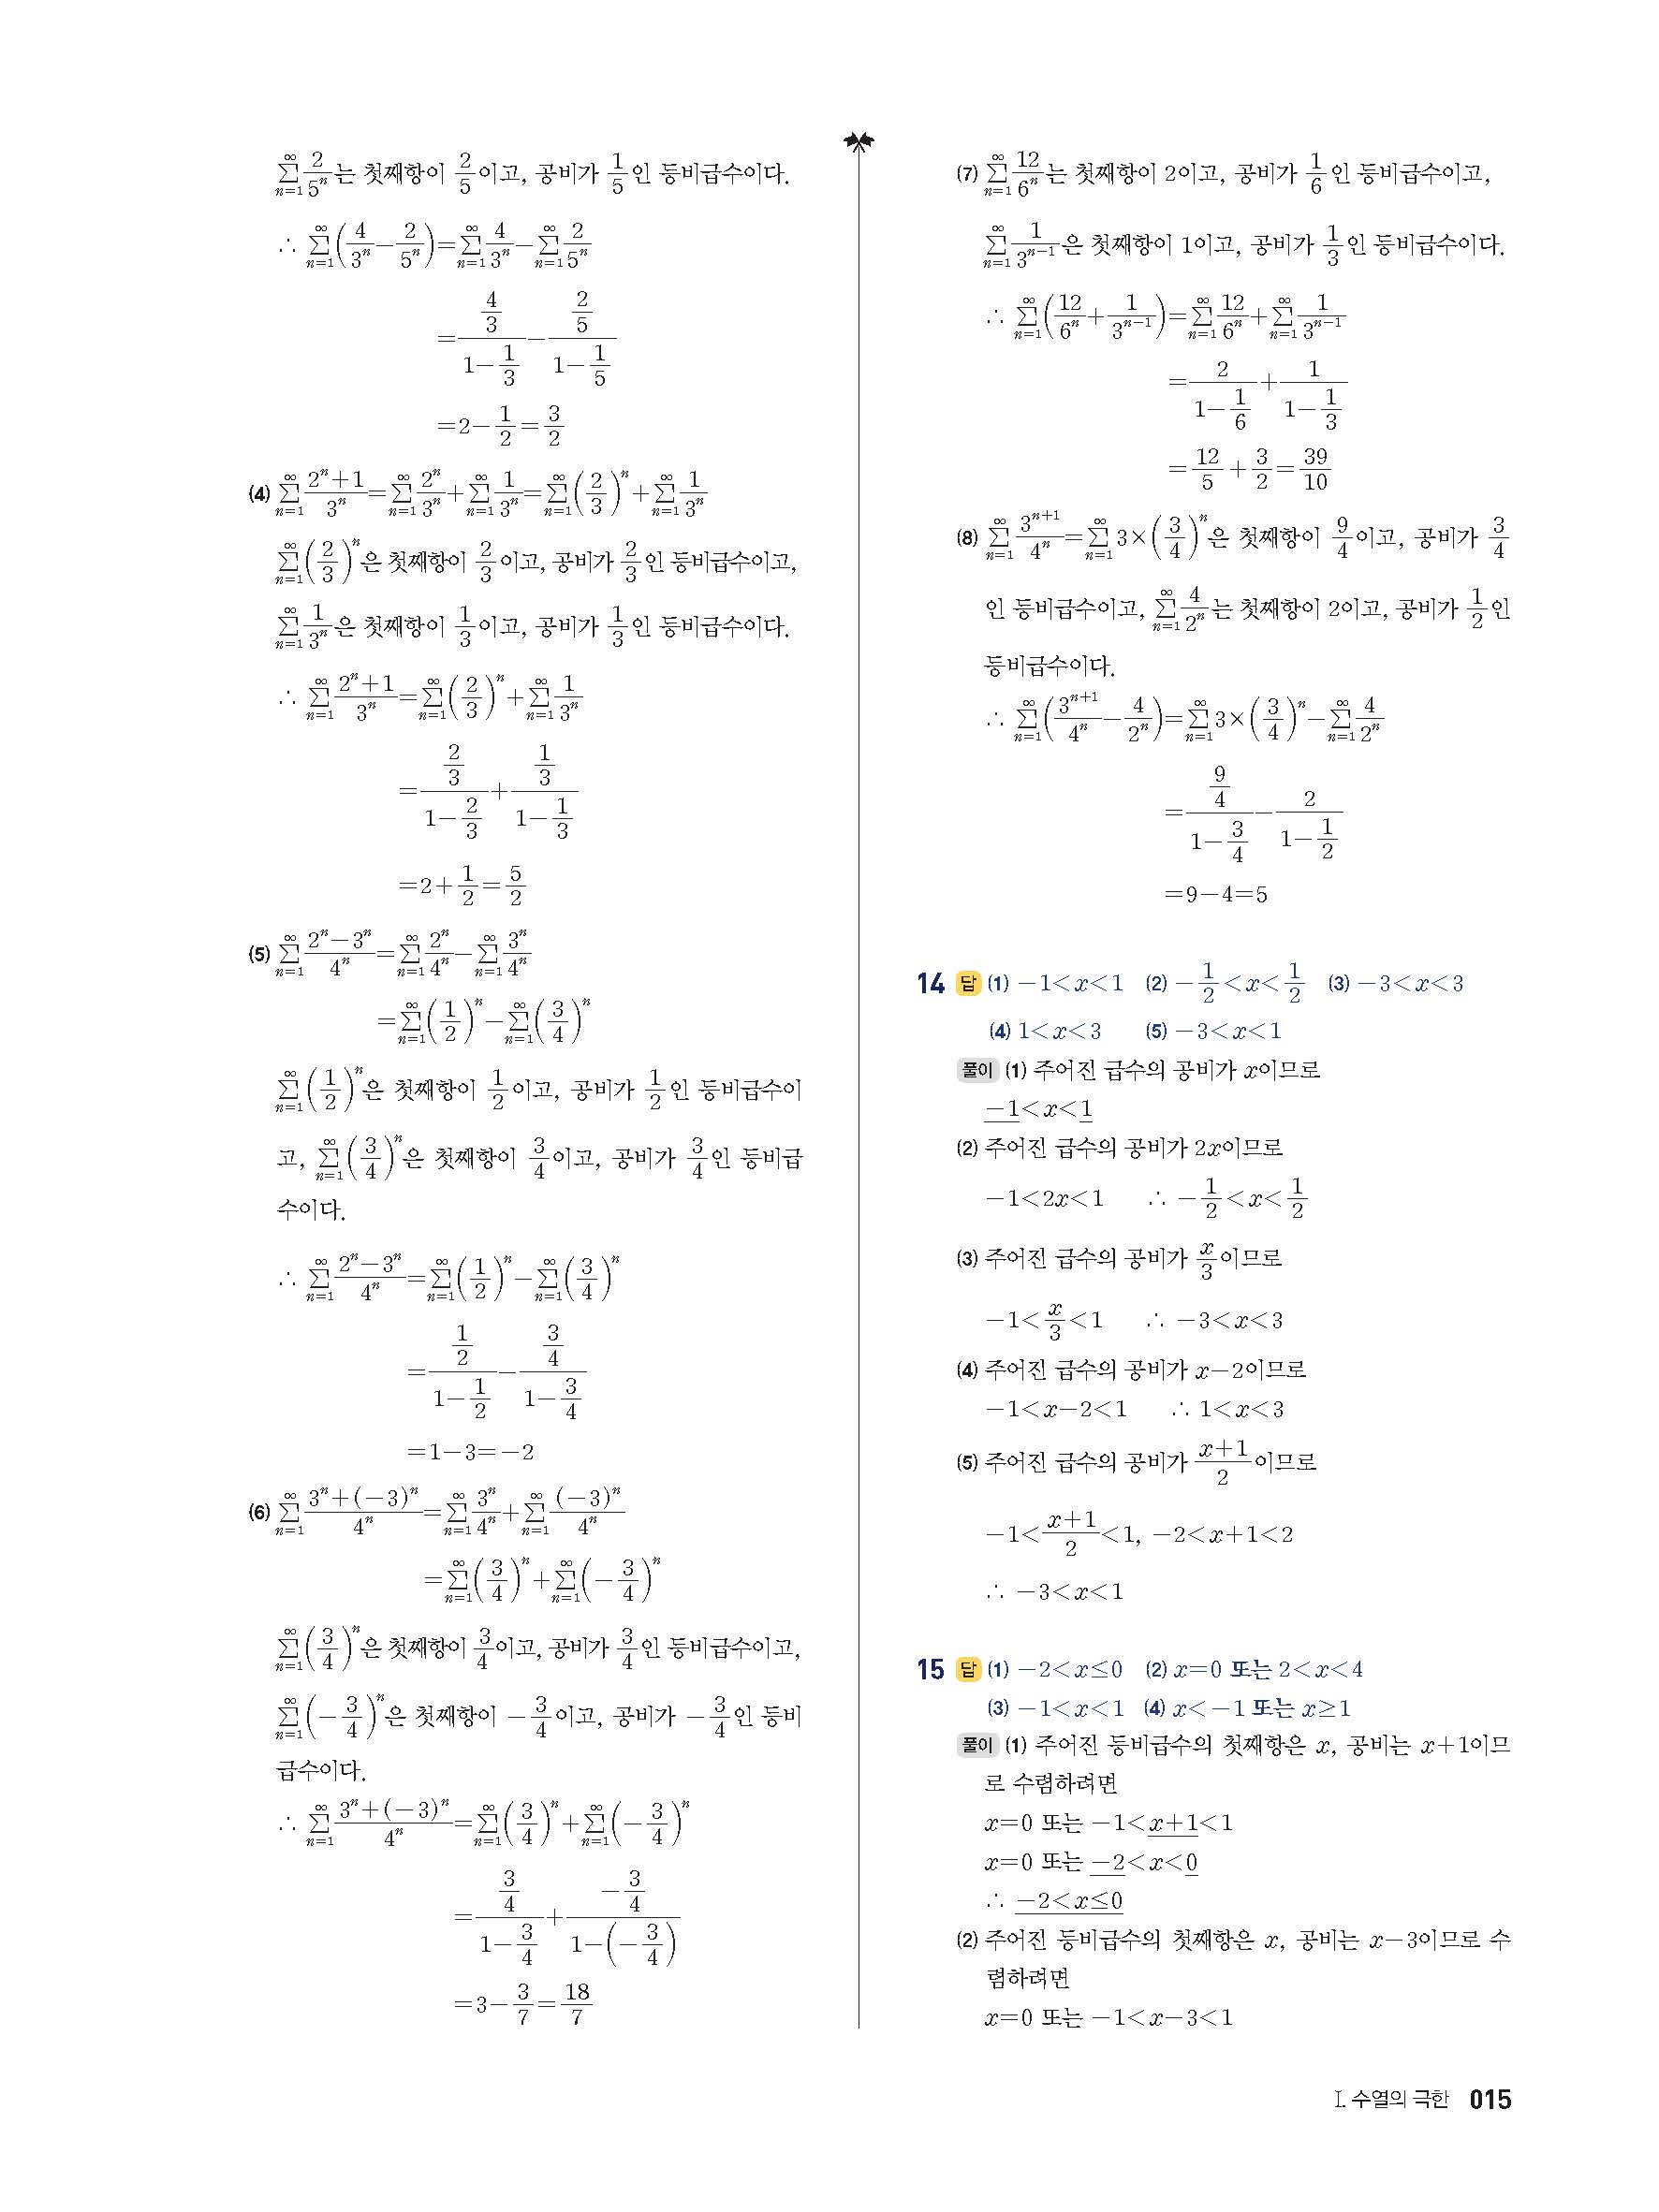 $\sum_{n=1}^{\infty}\frac{2}{5^n}$는 첫째항이 $\frac{2}{5}$이고, 공비가 $\frac{1}{5}$인 등비급수이다.
∴ $\sum_{n=1}^{\infty}\left(\frac{4}{3^n}-\frac{2}{5^n}\right)=\sum_{n=1}^{\infty}\frac{4}{3^n}-\sum_{n=1}^{\infty}\frac{2}{5^n}$
$=\frac{\frac{4}{3}}{1-\frac{1}{3}}-\frac{\frac{2}{5}}{1-\frac{1}{5}}$
$=2-\frac{1}{2}=\frac{3}{2}$
(4) $\sum_{n=1}^{\infty}\frac{2^n+1}{3^n}=\sum_{n=1}^{\infty}\frac{2^n}{3^n}+\sum_{n=1}^{\infty}\frac{1}{3^n}=\sum_{n=1}^{\infty}\left(\frac{2}{3}\right)^n+\sum_{n=1}^{\infty}\frac{1}{3^n}$
$\sum_{n=1}^{\infty}\left(\frac{2}{3}\right)^n$은 첫째항이 $\frac{2}{3}$이고, 공비가 $\frac{2}{3}$인 등비급수이고,
$\sum_{n=1}^{\infty}\frac{1}{3^n}$은 첫째항이 $\frac{1}{3}$이고, 공비가 $\frac{1}{3}$인 등비급수이다.
∴ $\sum_{n=1}^{\infty}\frac{2^n+1}{3^n}=\sum_{n=1}^{\infty}\left(\frac{2}{3}\right)^n+\sum_{n=1}^{\infty}\frac{1}{3^n}$
$=\frac{\frac{2}{3}}{1-\frac{2}{3}}+\frac{\frac{1}{3}}{1-\frac{1}{3}}$
$=2+\frac{1}{2}=\frac{5}{2}$
(5) $\sum_{n=1}^{\infty}\frac{2^n-3^n}{4^n}=\sum_{n=1}^{\infty}\frac{2^n}{4^n}-\sum_{n=1}^{\infty}\frac{3^n}{4^n}$
$=\sum_{n=1}^{\infty}\left(\frac{1}{2}\right)^n-\sum_{n=1}^{\infty}\left(\frac{3}{4}\right)^n$
$\sum_{n=1}^{\infty}\left(\frac{1}{2}\right)^n$은 첫째항이 $\frac{1}{2}$이고, 공비가 $\frac{1}{2}$인 등비급수이
고, $\sum_{n=1}^{\infty}\left(\frac{3}{4}\right)^n$은 첫째항이 $\frac{3}{4}$이고, 공비가 $\frac{3}{4}$인 등비급
수이다.
∴ $\sum_{n=1}^{\infty}\frac{2^n-3^n}{4^n}=\sum_{n=1}^{\infty}\left(\frac{1}{2}\right)^n-\sum_{n=1}^{\infty}\left(\frac{3}{4}\right)^n$
$=\frac{\frac{1}{2}}{1-\frac{1}{2}}-\frac{\frac{3}{4}}{1-\frac{3}{4}}$
$=1-3=-2$
(6) $\sum_{n=1}^{\infty}\frac{3^n+(-3)^n}{4^n}=\sum_{n=1}^{\infty}\frac{3^n}{4^n}+\sum_{n=1}^{\infty}\frac{(-3)^n}{4^n}$
$=\sum_{n=1}^{\infty}\left(\frac{3}{4}\right)^n+\sum_{n=1}^{\infty}\left(-\frac{3}{4}\right)^n$
$\sum_{n=1}^{\infty}\left(\frac{3}{4}\right)^n$은 첫째항이 $\frac{3}{4}$이고, 공비가 $\frac{3}{4}$인 등비급수이고,
$\sum_{n=1}^{\infty}\left(-\frac{3}{4}\right)^n$은 첫째항이 $-\frac{3}{4}$이고, 공비가 $-\frac{3}{4}$인 등비
급수이다.
∴ $\sum_{n=1}^{\infty}\frac{3^n+(-3)^n}{4^n}=\sum_{n=1}^{\infty}\left(\frac{3}{4}\right)^n+\sum_{n=1}^{\infty}\left(-\frac{3}{4}\right)^n$
$=\frac{\frac{3}{4}}{1-\frac{3}{4}}+\frac{-\frac{3}{4}}{1-\left(-\frac{3}{4}\right)}$
$=3-\frac{3}{7}=\frac{18}{7}$
(7) $\sum_{n=1}^{\infty}\frac{12}{6^n}$는 첫째항이 2이고, 공비가 $\frac{1}{6}$인 등비급수이고,
$\sum_{n=1}^{\infty}\frac{1}{3^{n-1}}$은 첫째항이 1이고, 공비가 $\frac{1}{3}$인 등비급수이다.
∴ $\sum_{n=1}^{\infty}\left(\frac{12}{6^n}+\frac{1}{3^{n-1}}\right)=\sum_{n=1}^{\infty}\frac{12}{6^n}+\sum_{n=1}^{\infty}\frac{1}{3^{n-1}}$
$=\frac{2}{1-\frac{1}{6}}+\frac{1}{1-\frac{1}{3}}$
$=\frac{12}{5}+\frac{3}{2}=\frac{39}{10}$
(8) $\sum_{n=1}^{\infty}\frac{3^{n+1}}{4^n}=\sum_{n=1}^{\infty}3\times\left(\frac{3}{4}\right)^n$은 첫째항이 $\frac{9}{4}$이고, 공비가 $\frac{3}{4}$
인 등비급수이고, $\sum_{n=1}^{\infty}\frac{4}{2^n}$는 첫째항이 2이고, 공비가 $\frac{1}{2}$인
등비급수이다.
∴ $\sum_{n=1}^{\infty}\left(\frac{3^{n+1}}{4^n}-\frac{4}{2^n}\right)=\sum_{n=1}^{\infty}3\times\left(\frac{3}{4}\right)^n-\sum_{n=1}^{\infty}\frac{4}{2^n}$
$=\frac{\frac{9}{4}}{1-\frac{3}{4}}-\frac{2}{1-\frac{1}{2}}$
$=9-4=5$
14 답 (1) $-1<x<1$ (2) $-\frac{1}{2}<x<\frac{1}{2}$ (3) $-3<x<3$
(4) $1<x<3$ (5) $-3<x<1$
풀이 (1) 주어진 급수의 공비가 $x$이므로
$-1<x<1$
(2) 주어진 급수의 공비가 $2x$이므로
$-1<2x<1$ ∴ $-\frac{1}{2}<x<\frac{1}{2}$
(3) 주어진 급수의 공비가 $\frac{x}{3}$이므로
$-1<\frac{x}{3}<1$ ∴ $-3<x<3$
(4) 주어진 급수의 공비가 $x-2$이므로
$-1<x-2<1$ ∴ $1<x<3$
(5) 주어진 급수의 공비가 $\frac{x+1}{2}$이므로
$-1<\frac{x+1}{2}<1$, $-2<x+1<2$
∴ $-3<x<1$
15 답 (1) $-2<x\le0$ (2) $x=0$ 또는 $2<x<4$
(3) $-1<x<1$ (4) $x<-1$ 또는 $x\ge1$
풀이 (1) 주어진 등비급수의 첫째항은 $x$, 공비는 $x+1$이므
로 수렴하려면
$x=0$ 또는 $-1<x+1<1$
$x=0$ 또는 $-2<x<0$
∴ $-2<x\le0$
(2) 주어진 등비급수의 첫째항은 $x$, 공비는 $x-3$이므로 수
렴하려면
$x=0$ 또는 $-1<x-3<1$
I. 수열의 극한 015